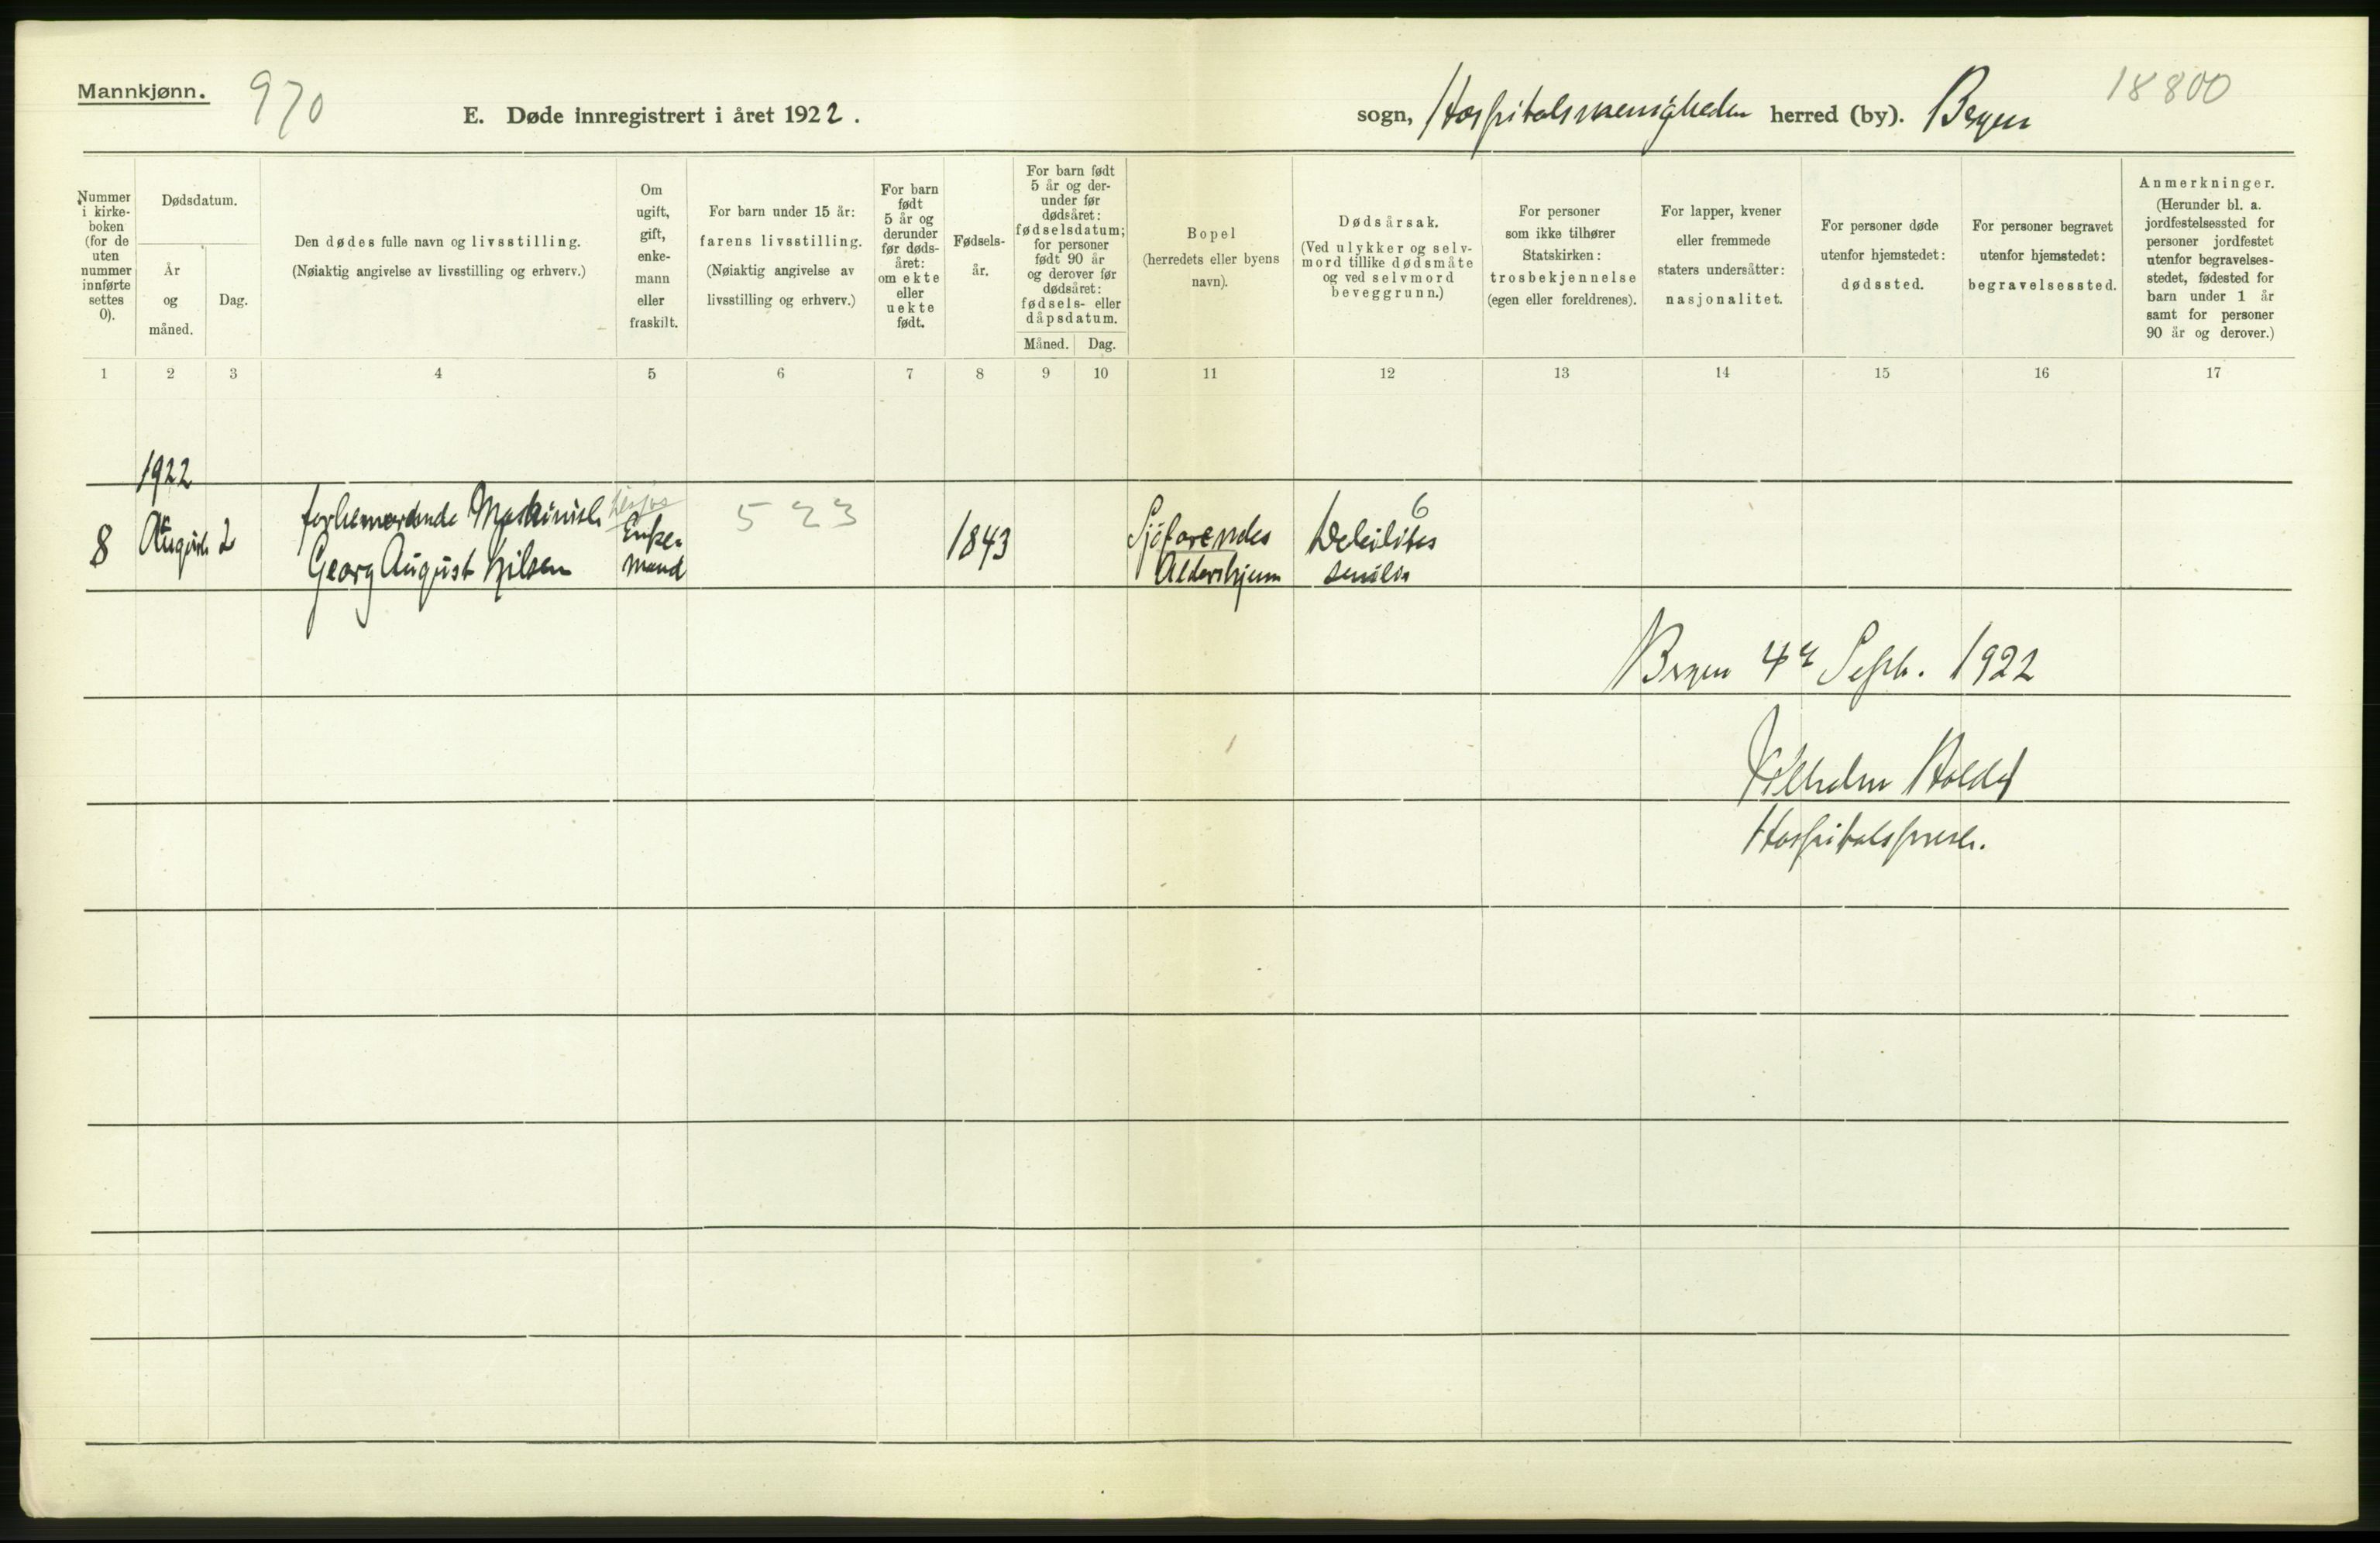 Mannkjønn.
970
E. Døde innregistrert i året 1922.
sogn, Hospitalsmenigheden herred (by). Bergen
18800
Nummer i kirke- boken (for de uten nummer innførte settes 0).
Dødsdatum.
År og måned.
Dag.
Den dødes fulle navn og livsstilling.
(Nøiaktig angivelse av livsstilling og erhverv.)
Om ugift, gift, enke- mann eller fraskilt.
For barn under 15 år:
farens livsstilling.
(Nøiaktig angivelse av
livsstilling og erhverv.)
For barn født 5 år og derunder før døds- året: om ekte eller uekte født.
Fødsels- år.
For barn født 5 år og der- under før dødsåret: fødselsdatum; for personer født 90 år og derover før dødsåret: fødsels- eller dåpsdatum.
Måned. Dag.
Bopel
(herredets eller byens
navn).
Dødsårsak.
(Ved ulykker og selv-
mord tillike dødsmåte
og ved selvmord
beveggrunn.)
For personer
som ikke tilhører
Statskirken:
trosbekjennelse
(egen eller foreldrenes).
For lapper, kvener
eller fremmede
staters undersåtter:
nasjonalitet.
For personer døde
utenfor hjemstedet:
dødssted.
For personer begravet
utenfor hjemstedet:
begravelsessted.
Anmerkninger.
(Herunder bl. a.
jordfestelsessted for
personer jordfestet
utenfor begravelses-
stedet, fødested for
barn under 1 år
samt for personer
90 år og derover.)
1 2 3 4 5 6 7 8 9 10 11 12 13 14 15 16 17
1922
forhenværende Maskinist
523
6
8 August 2
Georg August Nilsen
Enke-
mand
1843
Sjøfarendes
Aldershjem
Debilitas
senilis
Bergen 4de Septb. 1922
Vilhelm Holdt
Hospitalsprest.